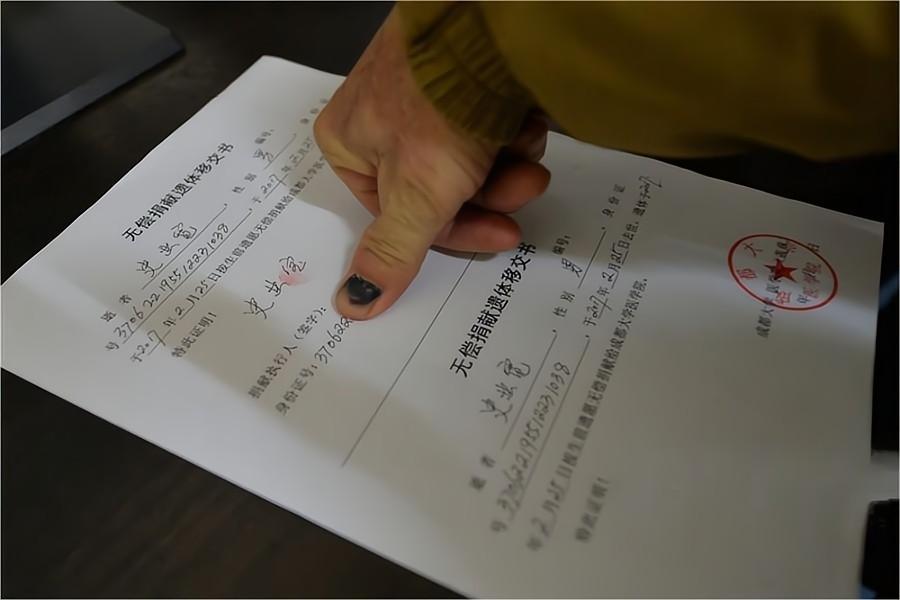 无偿捐献遗体移交书
编号：
逝者 史 ，性别 男
号 370622195512231038 ，于2017年2月2
于2017年2月25日按生前遗愿无偿捐献给成都大学医
特此证明！
史
捐献执行人（签字）：
身份证号：370622
无偿捐献遗体移交书
编号：
逝者 史 ，性别 男 ，身份证
号 370622195512231038 ，于2017年2月25日去世，遗体于2017
年2月25日按生前遗愿无偿捐献给成都大学医学院。
特此证明！
成都大